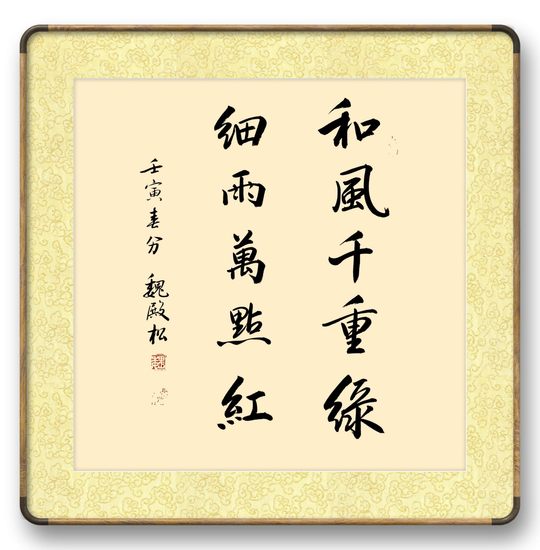 和風千重綠
細雨萬點紅
壬寅春分 魏殿松